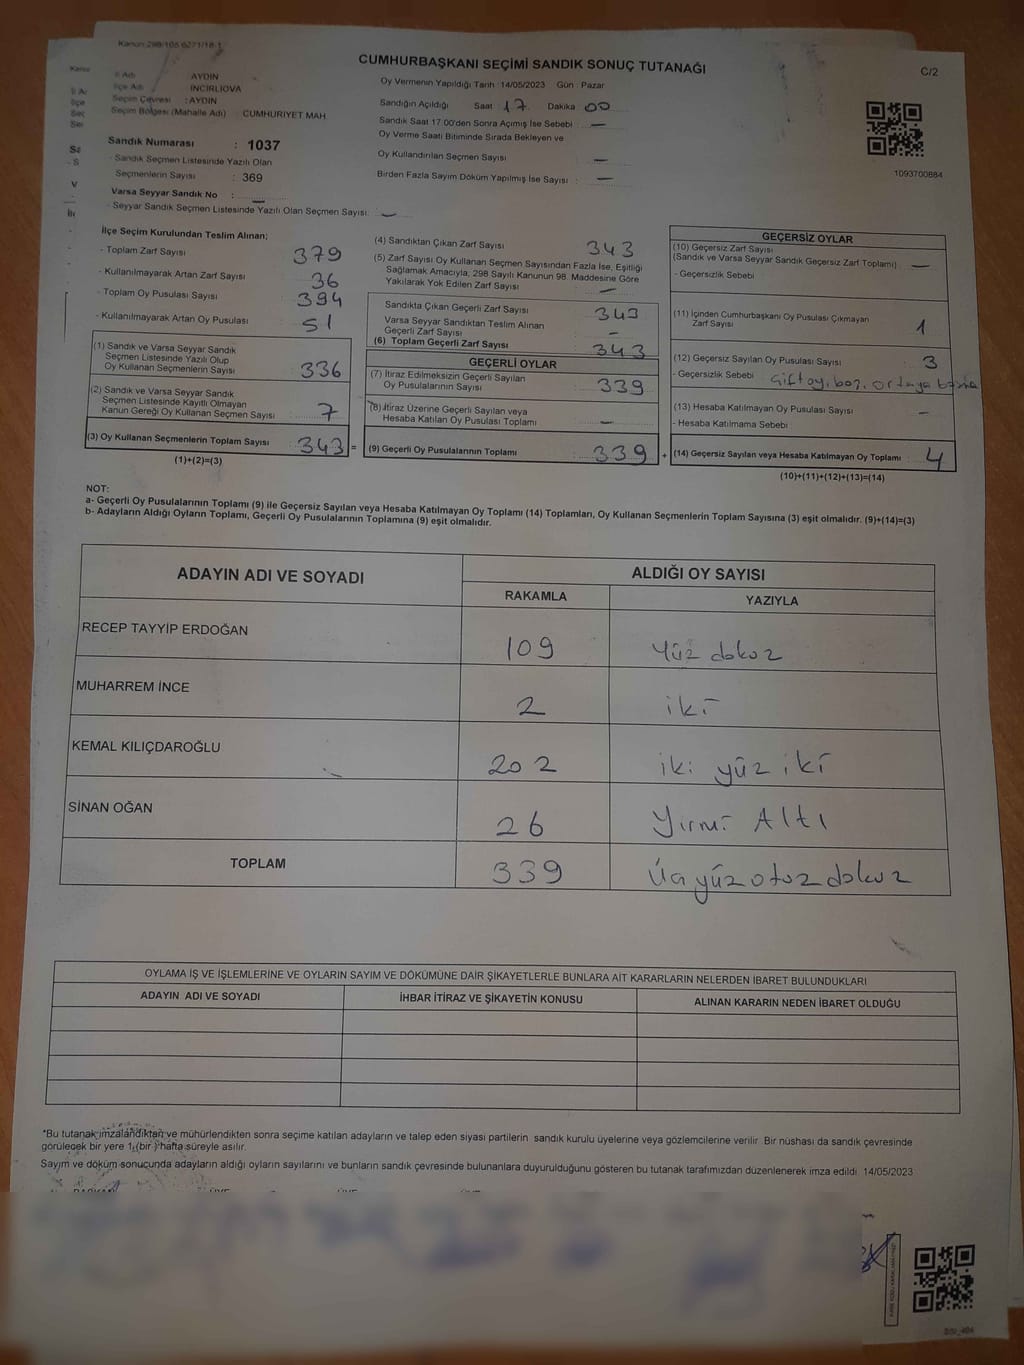 Kanun:298/105 6271/18-1
CUMHURBAŞKANI SEÇİMİ SANDIK SONUÇ TUTANAĞI
C/2
İl Adı AYDIN
İlçe Adı İNCİRLİOVA
Seçim Çevresi : AYDIN
Seçim Bölgesi (Mahalle Adı) CUMHURİYET MAH
Sandık Numarası : 1037
- Sandık Seçmen Listesinde Yazılı Olan
Seçmenlerin Sayısı : 369
Varsa Seyyar Sandık No : —
- Seyyar Sandık Seçmen Listesinde Yazılı Olan Seçmen Sayısı: —
Oy Vermenin Yapıldığı Tarih : 14/05/2023 Gün : Pazar
Sandığın Açıldığı Saat 17 Dakika 00
Sandık Saat 17:00'den Sonra Açımış İse Sebebi : —
Oy Verme Saati Bitiminde Sırada Bekleyen ve
Oy Kullandırılan Seçmen Sayısı —
Birden Fazla Sayım Döküm Yapılmış İse Sayısı : —
1093700884
İlçe Seçim Kurulundan Teslim Alınan;
- Toplam Zarf Sayısı 379
- Kullanılmayarak Artan Zarf Sayısı 36
- Toplam Oy Pusulası Sayısı 394
- Kullanılmayarak Artan Oy Pusulası 51
(1) Sandık ve Varsa Seyyar Sandık
Seçmen Listesinde Yazılı Olup
Oy Kullanan Seçmenlerin Sayısı 336
(2) Sandık ve Varsa Seyyar Sandık
Seçmen Listesinde Kayıtlı Olmayan
Kanun Gereği Oy Kullanan Seçmen Sayısı 7
(3) Oy Kullanan Seçmenlerin Toplam Sayısı : 343 =
(1)+(2)=(3)
(4) Sandıktan Çıkan Zarf Sayısı 343
(5) Zarf Sayısı Oy Kullanan Seçmen Sayısından Fazla İse, Eşitliği
Sağlamak Amacıyla, 298 Sayılı Kanunun 98. Maddesine Göre
Yakılarak Yok Edilen Zarf Sayısı —
Sandıkta Çıkan Geçerli Zarf Sayısı : 343
Varsa Seyyar Sandıktan Teslim Alınan
Geçerli Zarf Sayısı —
(6) Toplam Geçerli Zarf Sayısı : 343
GEÇERLİ OYLAR
(7) İtiraz Edilmeksizin Geçerli Sayılan
Oy Pusulalarının Sayısı : 339
(8) İtiraz Üzerine Geçerli Sayılan veya
Hesaba Katılan Oy Pusulası Toplamı : —
(9) Geçerli Oy Pusulalarının Toplamı : 339 +
GEÇERSİZ OYLAR
(10) Geçersiz Zarf Sayısı
(Sandık ve Varsa Seyyar Sandık Geçersiz Zarf Toplamı) : —
- Geçersizlik Sebebi
(11) İçinden Cumhurbaşkanı Oy Pusulası Çıkmayan
Zarf Sayısı 1
(12) Geçersiz Sayılan Oy Pusulası Sayısı : 3
- Geçersizlik Sebebi Çift oy, boş, ortaya basma
(13) Hesaba Katılmayan Oy Pusulası Sayısı —
- Hesaba Katılmama Sebebi
(14) Geçersiz Sayılan veya Hesaba Katılmayan Oy Toplamı : 4
(10)+(11)+(12)+(13)=(14)
NOT:
a- Geçerli Oy Pusulalarının Toplamı (9) ile Geçersiz Sayılan veya Hesaba Katılmayan Oy Toplamı (14) Toplamları, Oy Kullanan Seçmenlerin Toplam Sayısına (3) eşit olmalıdır. (9)+(14)=(3)
b- Adayların Aldığı Oyların Toplamı, Geçerli Oy Pusulalarının Toplamına (9) eşit olmalıdır.
ADAYIN ADI VE SOYADI
ALDIĞI OY SAYISI
RAKAMLA YAZIYLA
RECEP TAYYİP ERDOĞAN 109 Yüz dokuz
MUHARREM İNCE 2 iki
KEMAL KILIÇDAROĞLU 202 iki yüz iki
SİNAN OĞAN 26 Yirmi Altı
TOPLAM 339 Üçyüzotuzdokuz
OYLAMA İŞ VE İŞLEMLERİNE VE OYLARIN SAYIM VE DÖKÜMÜNE DAİR ŞİKAYETLERLE BUNLARA AİT KARARLARIN NELERDEN İBARET BULUNDUKLARI
ADAYIN ADI VE SOYADI İHBAR İTİRAZ VE ŞİKAYETİN KONUSU ALINAN KARARIN NEDEN İBARET OLDUĞU
*Bu tutanak imzalandıktan ve mühürlendikten sonra seçime katılan adayların ve talep eden siyasi partilerin sandık kurulu üyelerine veya gözlemcilerine verilir. Bir nüshası da sandık çevresinde
görülecek bir yere 1 (bir) hafta süreyle asılır.
Sayım ve döküm sonucunda adayların aldığı oyların sayılarını ve bunların sandık çevresinde bulunanlara duyurulduğunu gösteren bu tutanak tarafımızdan düzenlenerek imza edildi 14/05/2023